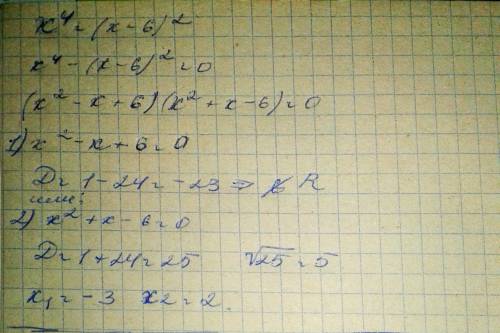 x⁴ = (x-6)²
x⁴ - (x-6)² = 0
(x² - x + 6)(x² + x - 6) = 0
1) x² - x + 6 = 0
D = 1 - 24 = -23 ⇒ ∉ R
или:
2) x² + x - 6 = 0
D = 1 + 24 = 25 √25 = 5
x₁ = -3 x₂ = 2.